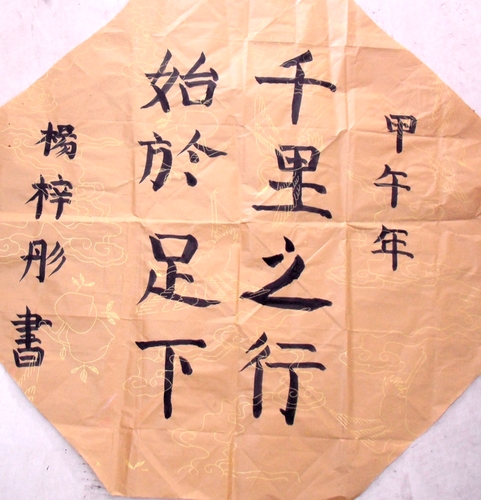 甲午年
千里之行
始於足下
楊梓彤書